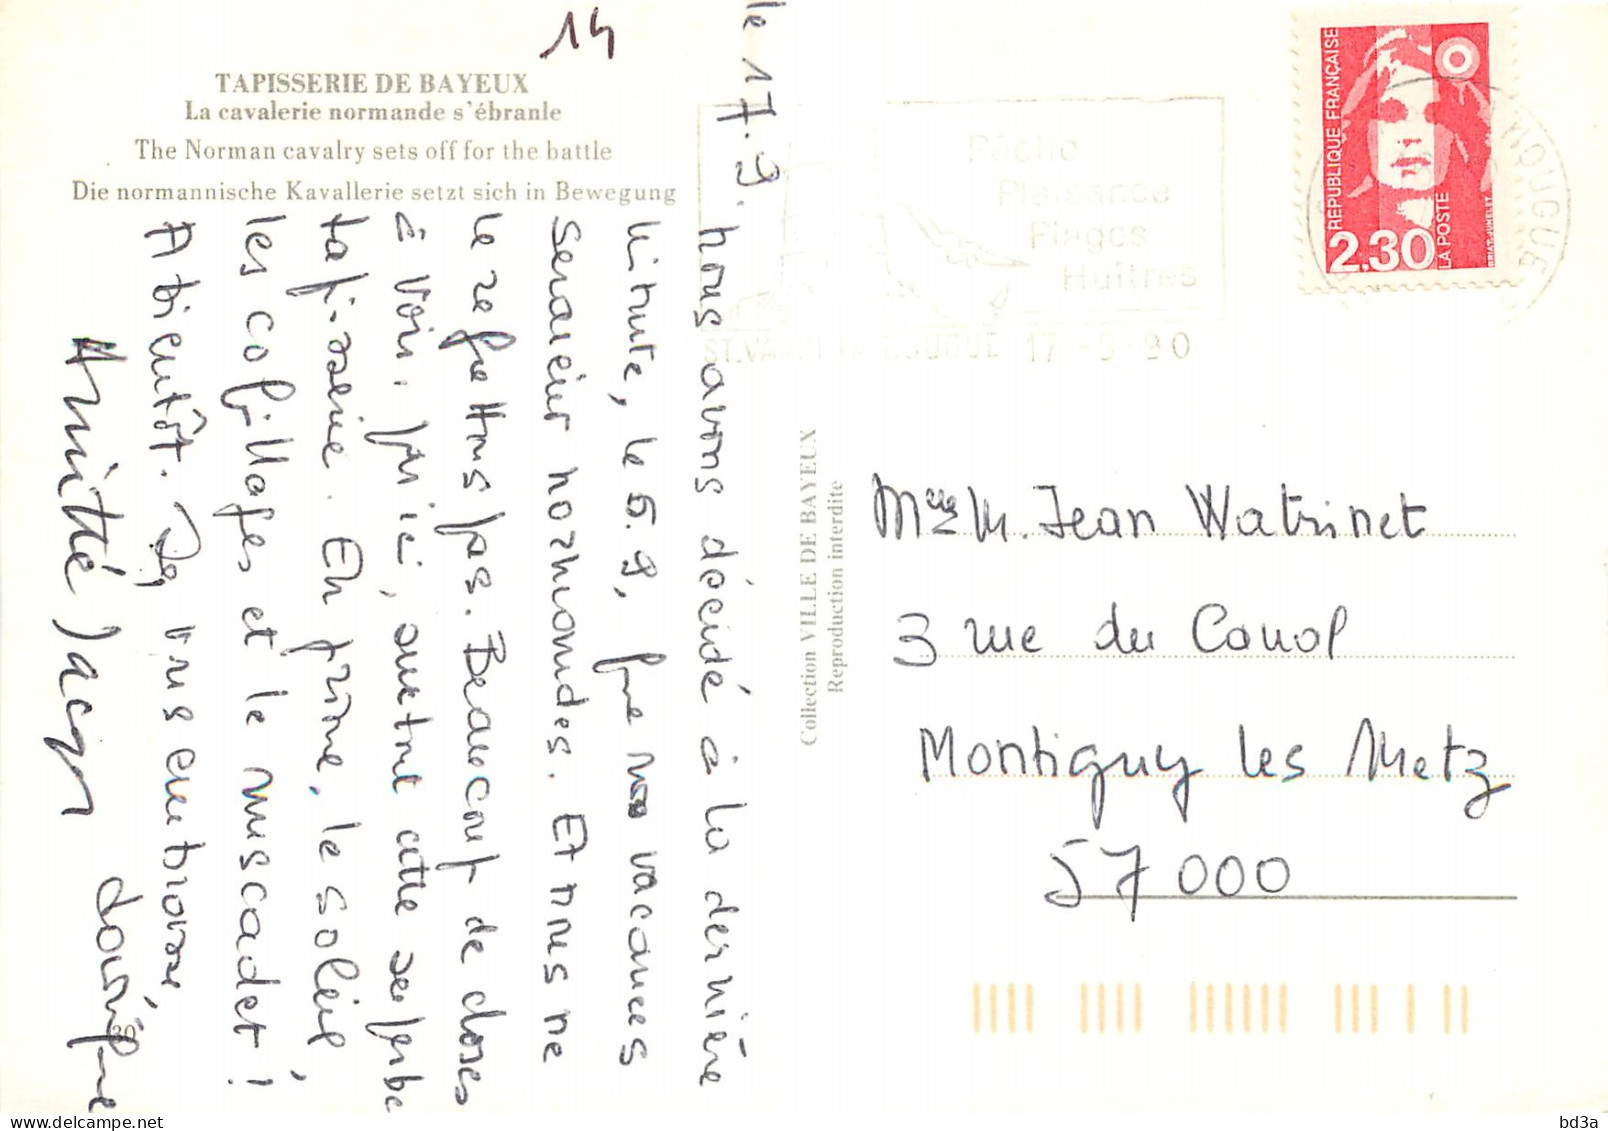 14
TAPISSERIE DE BAYEUX
La cavalerie normande s'ébranle
The Norman cavalry sets off for the battle
Die normannische Kavallerie setzt sich in Bewegung
le 17.9.
nous avons décidé à la dernière
minute, le 5.9, que nos vacances
seraient normandes. Et nous ne
le regrettons pas. Beaucoup de choses
à voir, par ici, outre cette superbe
tapisserie. En prime, le soleil,
les coquillages et le muscadet !
A bientôt. Je vous embrasse,
Amitié Jacques
Collection VILLE DE BAYEUX
Reproduction interdite
Pêche
Plaisance
Plages
Huîtres
17-9-90
REPUBLIQUE FRANÇAISE
2,30
LA POSTE
Mme M. Jean Watrinet
3 rue du Canal
Montigny les Metz
57000
30
bd3a